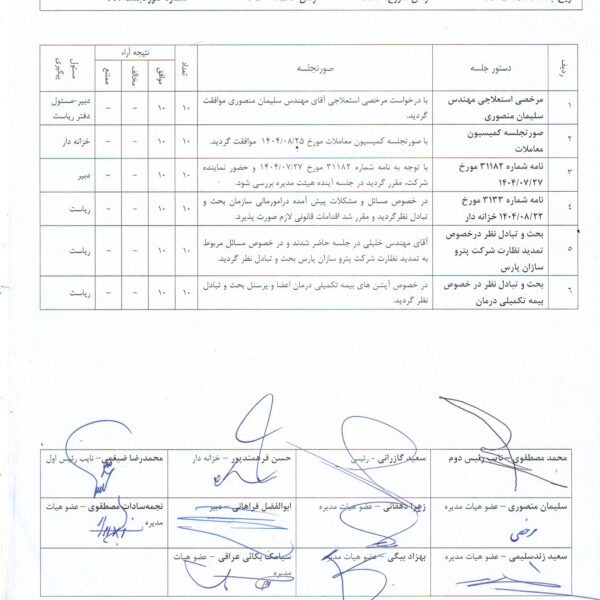 ردیف دستور جلسه صورتجلسه تعداد نتیجه آراء مسئول پیگیری
موافق مخالف ممتنع
۱ مرخصی استعلاجی مهندس سلیمان منصوری با درخواست مرخصی استعلاجی آقای مهندس سلیمان منصوری موافقت گردید. ۱۰ ۱۰ – – دبیر-مسئول دفتر ریاست
۲ صورتجلسه کمیسیون معاملات با صورتجلسه کمیسیون معاملات مورخ ۱۴۰۴/۰۸/۲۵ موافقت گردید. ۱۰ ۱۰ – – خزانه دار
۳ نامه شماره ۳۱۱۸۲ مورخ ۱۴۰۴/۰۷/۲۷ با توجه به نامه شماره ۳۱۱۸۲ مورخ ۱۴۰۴/۰۷/۲۷ و حضور نماینده شرکت، مقرر گردید در جلسه آینده هیئت مدیره بررسی شود. ۱۰ ۱۰ – – دبیر
۴ نامه شماره ۳۱۳۳ مورخ ۱۴۰۴/۰۸/۲۲ خزانه دار در خصوص مسائل و مشکلات پیش آمده درامورمالی سازمان بحث و تبادل نظر گردید و مقرر شد اقدامات قانونی لازم صورت پذیرد. ۱۰ ۱۰ – – ریاست
۵ بحث و تبادل نظر درخصوص تمدید نظارت شرکت پترو سازان پارس آقای مهندس خلیلی در جلسه حاضر شدند و در خصوص مسائل مربوط به تمدید نظارت شرکت پترو سازان پارس بحث و تبادل نظر گردید. ۱۰ ۱۰ – – ریاست
۶ بحث و تبادل نظر در خصوص بیمه تکمیلی درمان در خصوص آپشن های بیمه تکمیلی درمان اعضا و پرسنل بحث و تبادل نظر گردید. ۱۰ ۱۰ – – ریاست
محمد مصطفوی – نایب رئیس دوم سعید گازرانی – رئیس حسن فرهمندپور – خزانه دار محمدرضا ضیغمی – نایب رئیس اول
سلیمان منصوری – عضو هیات مدیره زهرا دهقانی – عضو هیات مدیره ابوالفضل فراهانی – دبیر نجمه‌سادات مصطفوی – عضو هیات مدیره
مرخصی
سعید زندسلیمی – عضو هیات مدیره بهزاد بیگی – عضو هیات مدیره سیامک بکائی عراقی – عضو هیات مدیره